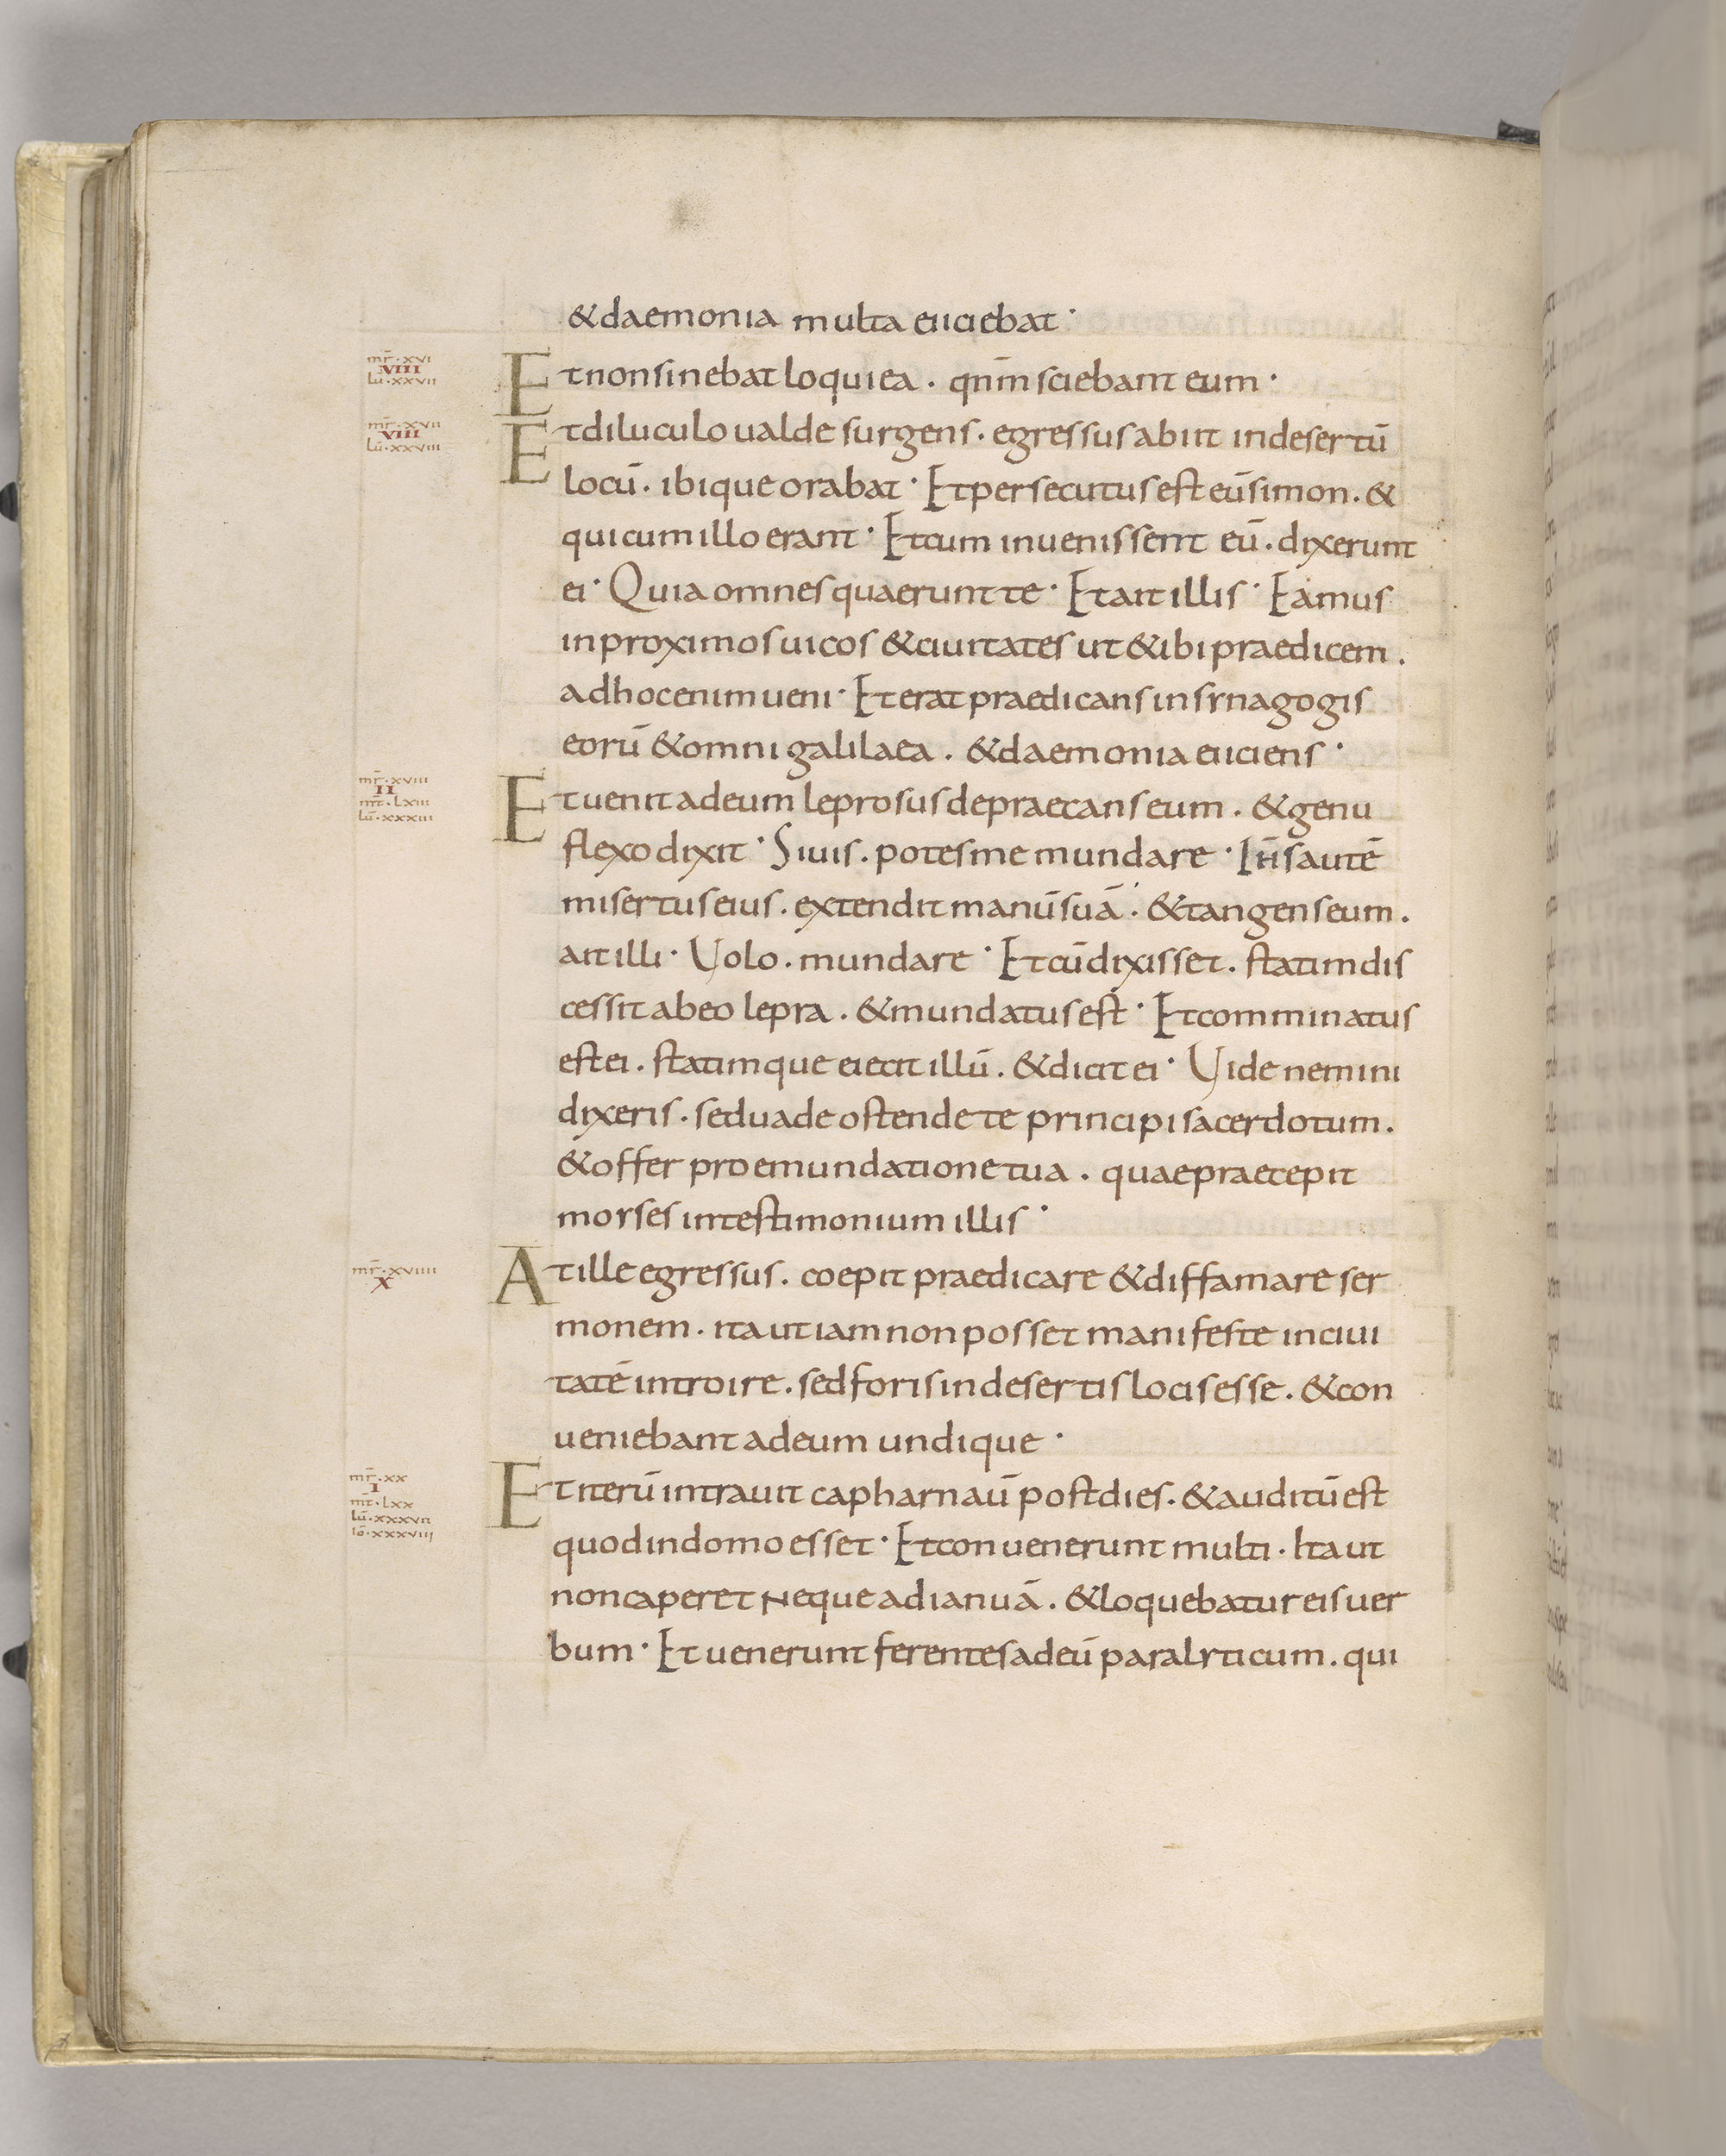 & daemonia multa eiiciebat·
mr̄·xvi
VIII
Lū·xxvii
Et non sinebat loqui ea. qnm̄ sciebant eum·
mr̄·xvii
VIII
Lū·xxviii
Et diluculo ualde surgens. egressus abiit in desertū
locū. ibique orabat· Et persecutus est eū simon. &
qui cum illo erant· Et cum inuenissent eū. dixerunt
ei· Quia omnes quaerunt te· Et ait illis· Eamus
in proximos uicos & ciuitates ut & ibi praedicem.
ad hoc enim ueni· Et erat praedicans in synagogis
eorū & omni galilaea. & daemonia eiiciens·
mr̄·xviii
II
mt̄·Lxiii
Lū·xxxiii
Et uenit ad eum leprosus depraecans eum. & genu
flexo dixit· Si uis. potes me mundare· Ih̄s autē
misertus eius. extendit manū suā. & tangens eum.
ait illi· Uolo. mundare· Et cū dixisset. statim dis
cessit ab eo lepra. & mundatus est· Et comminatus
est ei. statimque eiecit illū. & dicit ei· Uide nemini
dixeris. sed uade ostende te principi sacerdotum.
& offer pro emundatione tua. quae praecepit
moyses in testimonium illis·
mr̄·xviiii
X
At ille egressus. coepit praedicare & diffamare ser
monem. ita ut iam non posset manifeste in ciui
tatē introire. sed foris in desertis locis esse. & con
ueniebant ad eum undique·
mr̄·xx
I
mt̄·Lxx
Lū·xxxvii
Iō·xxxviii
Et iterū intrauit capharnaū post dies. & auditū est
quod in domo esset· Et conuenerunt multi. Ita ut
non caperet Neque ad ianuā. & loquebatur eis uer
bum· Et uenerunt ferentes ad eū paralyticum. qui